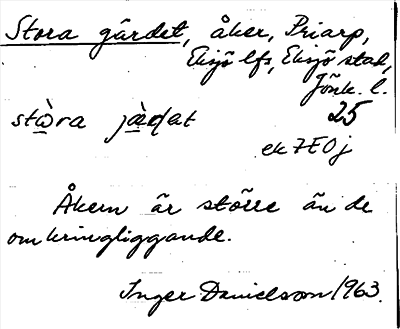 Stora gärdet, åker, Priarp,
Eksjö lfs, Eksjö stad,
Jönk. l.
stὼra jæ̀ɖat 25
ek 7E0j
Åkern är större än de
omkringliggande.
Inger Danielsson 1963.